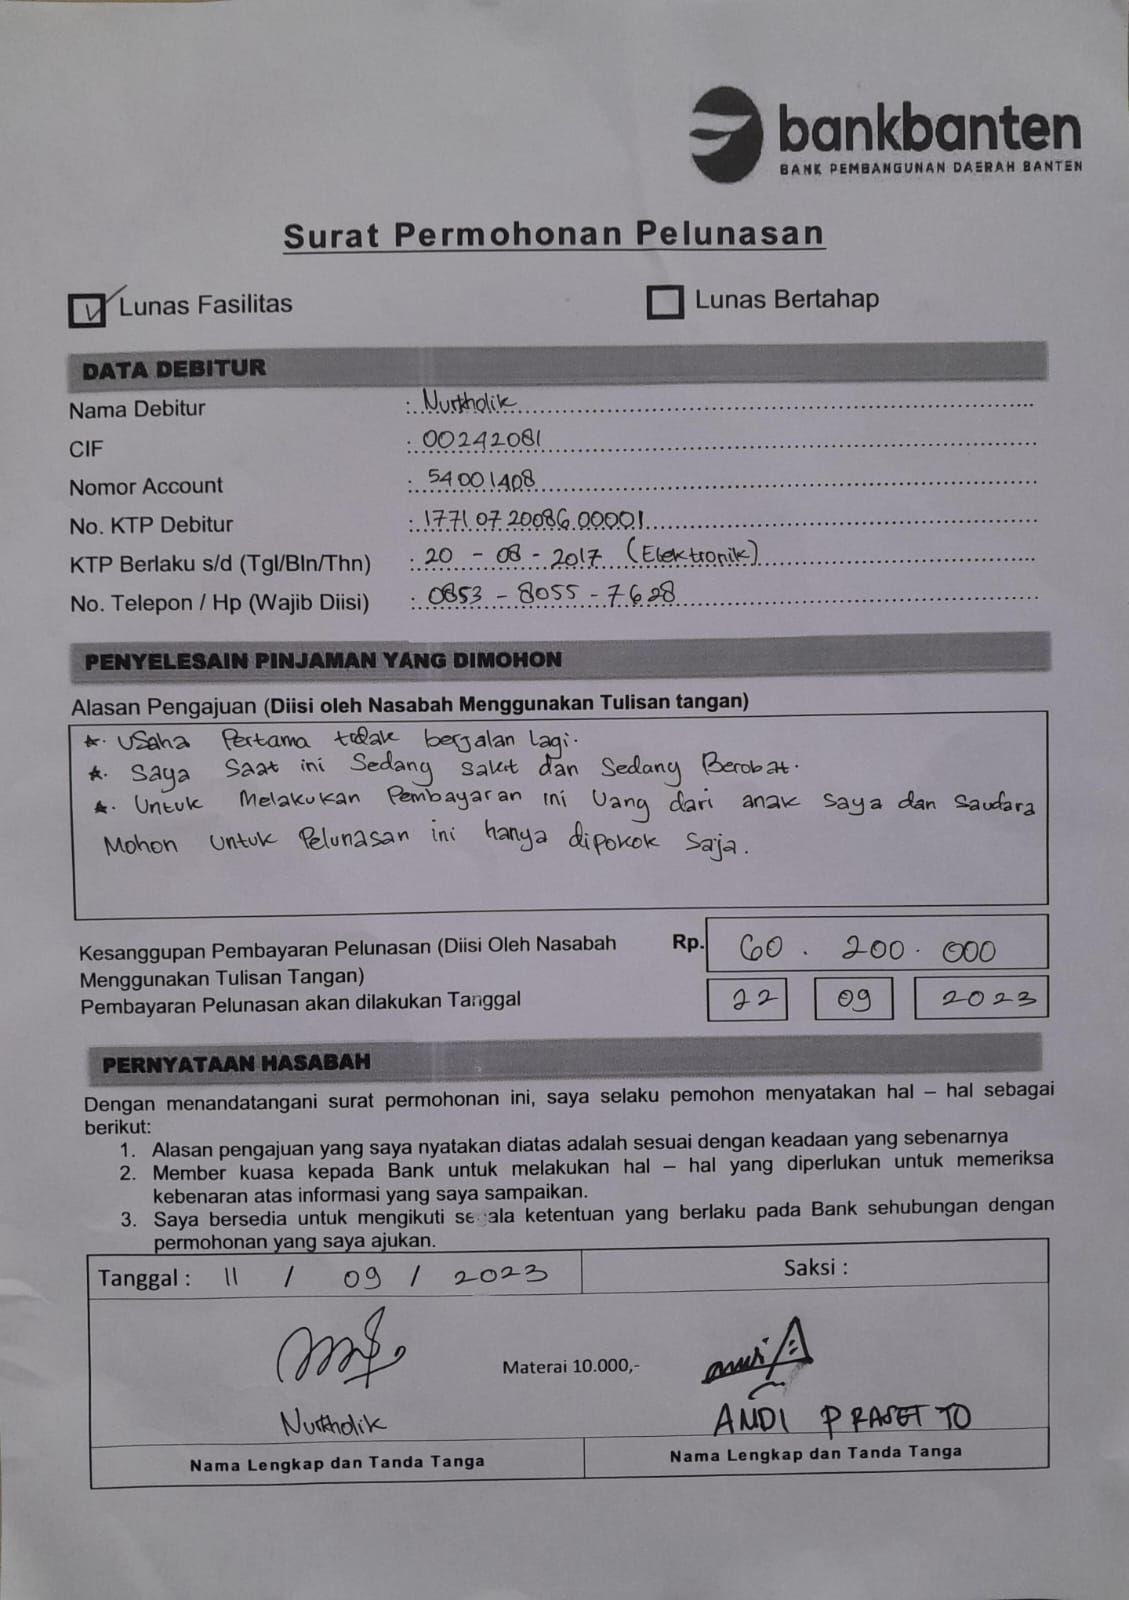 bankbanten
BANK PEMBANGUNAN DAERAH BANTEN
Surat Permohonan Pelunasan
Lunas Fasilitas
Lunas Bertahap
DATA DEBITUR
Nama Debitur : Nurkholik
CIF : 00242081
Nomor Account : 54001408
No. KTP Debitur : 1771.07.20086.00001
KTP Berlaku s/d (Tgl/Bln/Thn) : 20 - 08 - 2017 (Elektronik)
No. Telepon / Hp (Wajib Diisi) : 0853 - 8055 - 7628
PENYELESAIN PINJAMAN YANG DIMOHON
Alasan Pengajuan (Diisi oleh Nasabah Menggunakan Tulisan tangan)
Usaha Pertama tidak berjalan lagi.
Saya Saat ini Sedang sakit dan Sedang Berobat.
Untuk Melakukan Pembayaran ini Uang dari anak saya dan Saudara
Mohon Untuk Pelunasan ini hanya dipokok saja.
Kesanggupan Pembayaran Pelunasan (Diisi Oleh Nasabah Rp. 60 . 200 . 000
Menggunakan Tulisan Tangan)
Pembayaran Pelunasan akan dilakukan Tanggal 22 09 2023
PERNYATAAN HASABAH
Dengan menandatangani surat permohonan ini, saya selaku pemohon menyatakan hal – hal sebagai
berikut:
1. Alasan pengajuan yang saya nyatakan diatas adalah sesuai dengan keadaan yang sebenarnya
2. Member kuasa kepada Bank untuk melakukan hal – hal yang diperlukan untuk memeriksa
kebenaran atas informasi yang saya sampaikan.
3. Saya bersedia untuk mengikuti segala ketentuan yang berlaku pada Bank sehubungan dengan
permohonan yang saya ajukan.
Tanggal : 11 / 09 / 2023
Saksi :
Materai 10.000,-
Nurkholik
ANDI PRASETTO
Nama Lengkap dan Tanda Tanga
Nama Lengkap dan Tanda Tanga